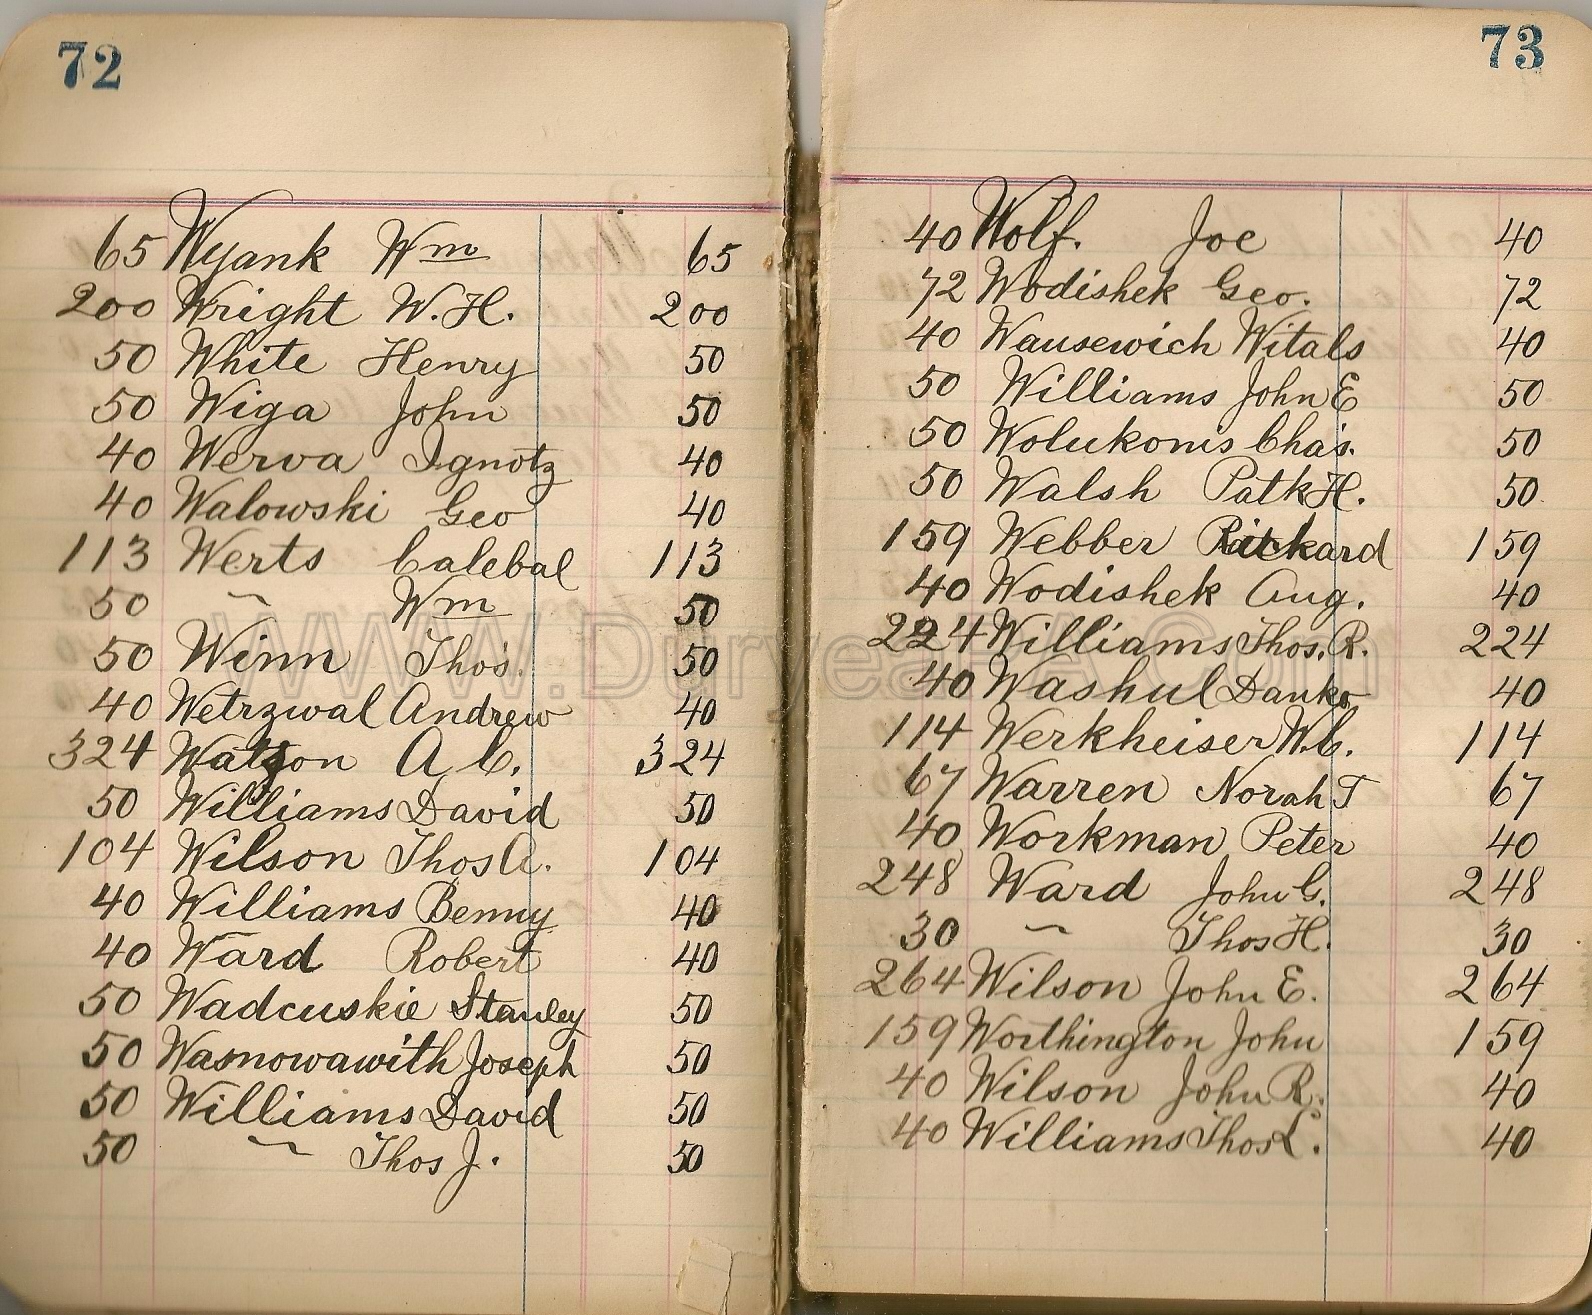 72
65 Wyank Wm 65
200 Wright W.H. 200
50 White Henry 50
50 Wiga John 50
40 Werva Ignotz 40
40 Walowski Geo 40
113 Werts Calebal 113
50 〃 Wm 50
50 Winn Thos. 50
40 Wetrzwal Andrew 40
324 Watson A C. 324
50 Williams David 50
104 Wilson Thos A. 104
40 Williams Benny 40
40 Ward Robert 40
50 Wadcuskie Stanley 50
50 Wasnowawith Joseph 50
50 Williams David 50
50 〃 Thos J. 50
73
40 Wolf. Joe 40
72 Wodishek Geo. 72
40 Wausewich Witals 40
50 Williams John E 50
50 Wolukonis Chas. 50
50 Walsh Patk H. 50
159 Webber Rickard 159
40 Wodishek Aug. 40
224 Williams Thos. R. 224
40 Washul Danko 40
114 Werkheiser W.C. 114
67 Warren Norah T 67
40 Workman Peter 40
248 Ward John G. 248
30 〃 Thos H. 30
264 Wilson John E. 264
159 Worthington John 159
40 Wilson John R. 40
40 Williams Thos C. 40
WWW.DuryeaPA.Com